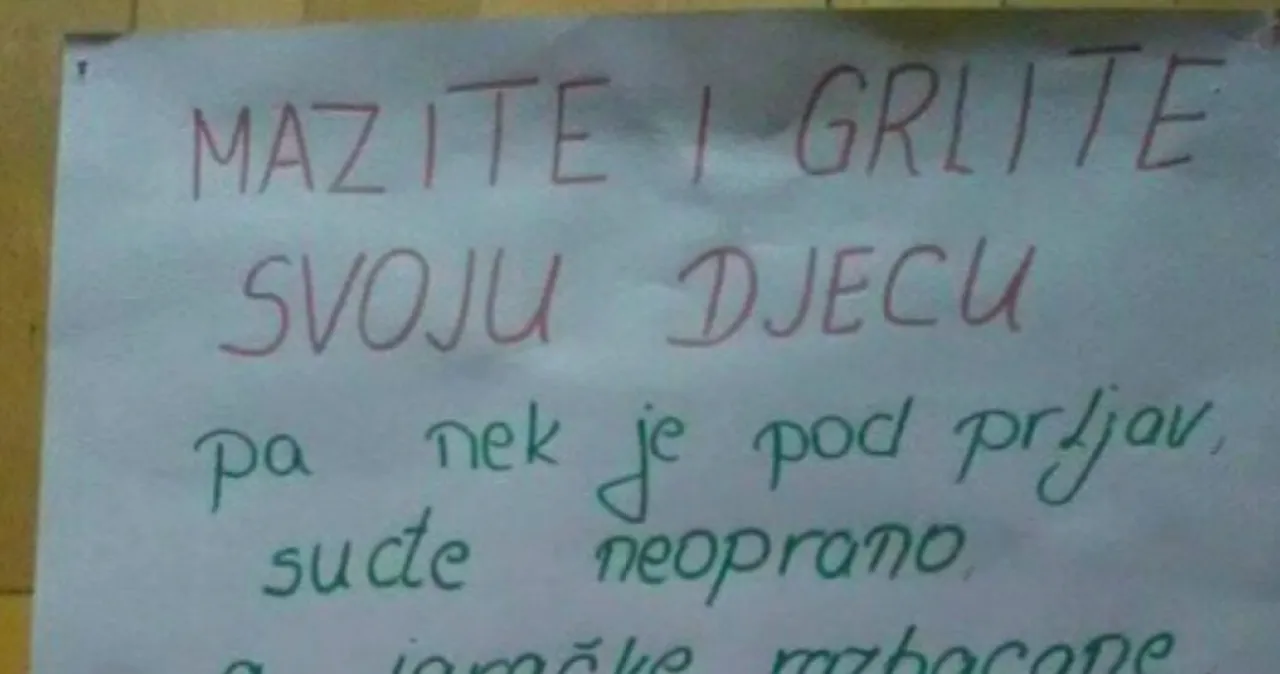 MAZITE I GRLITE
SVOJU DJECU
pa nek je pod prljav,
suđe neoprano,
a igračke razbacane